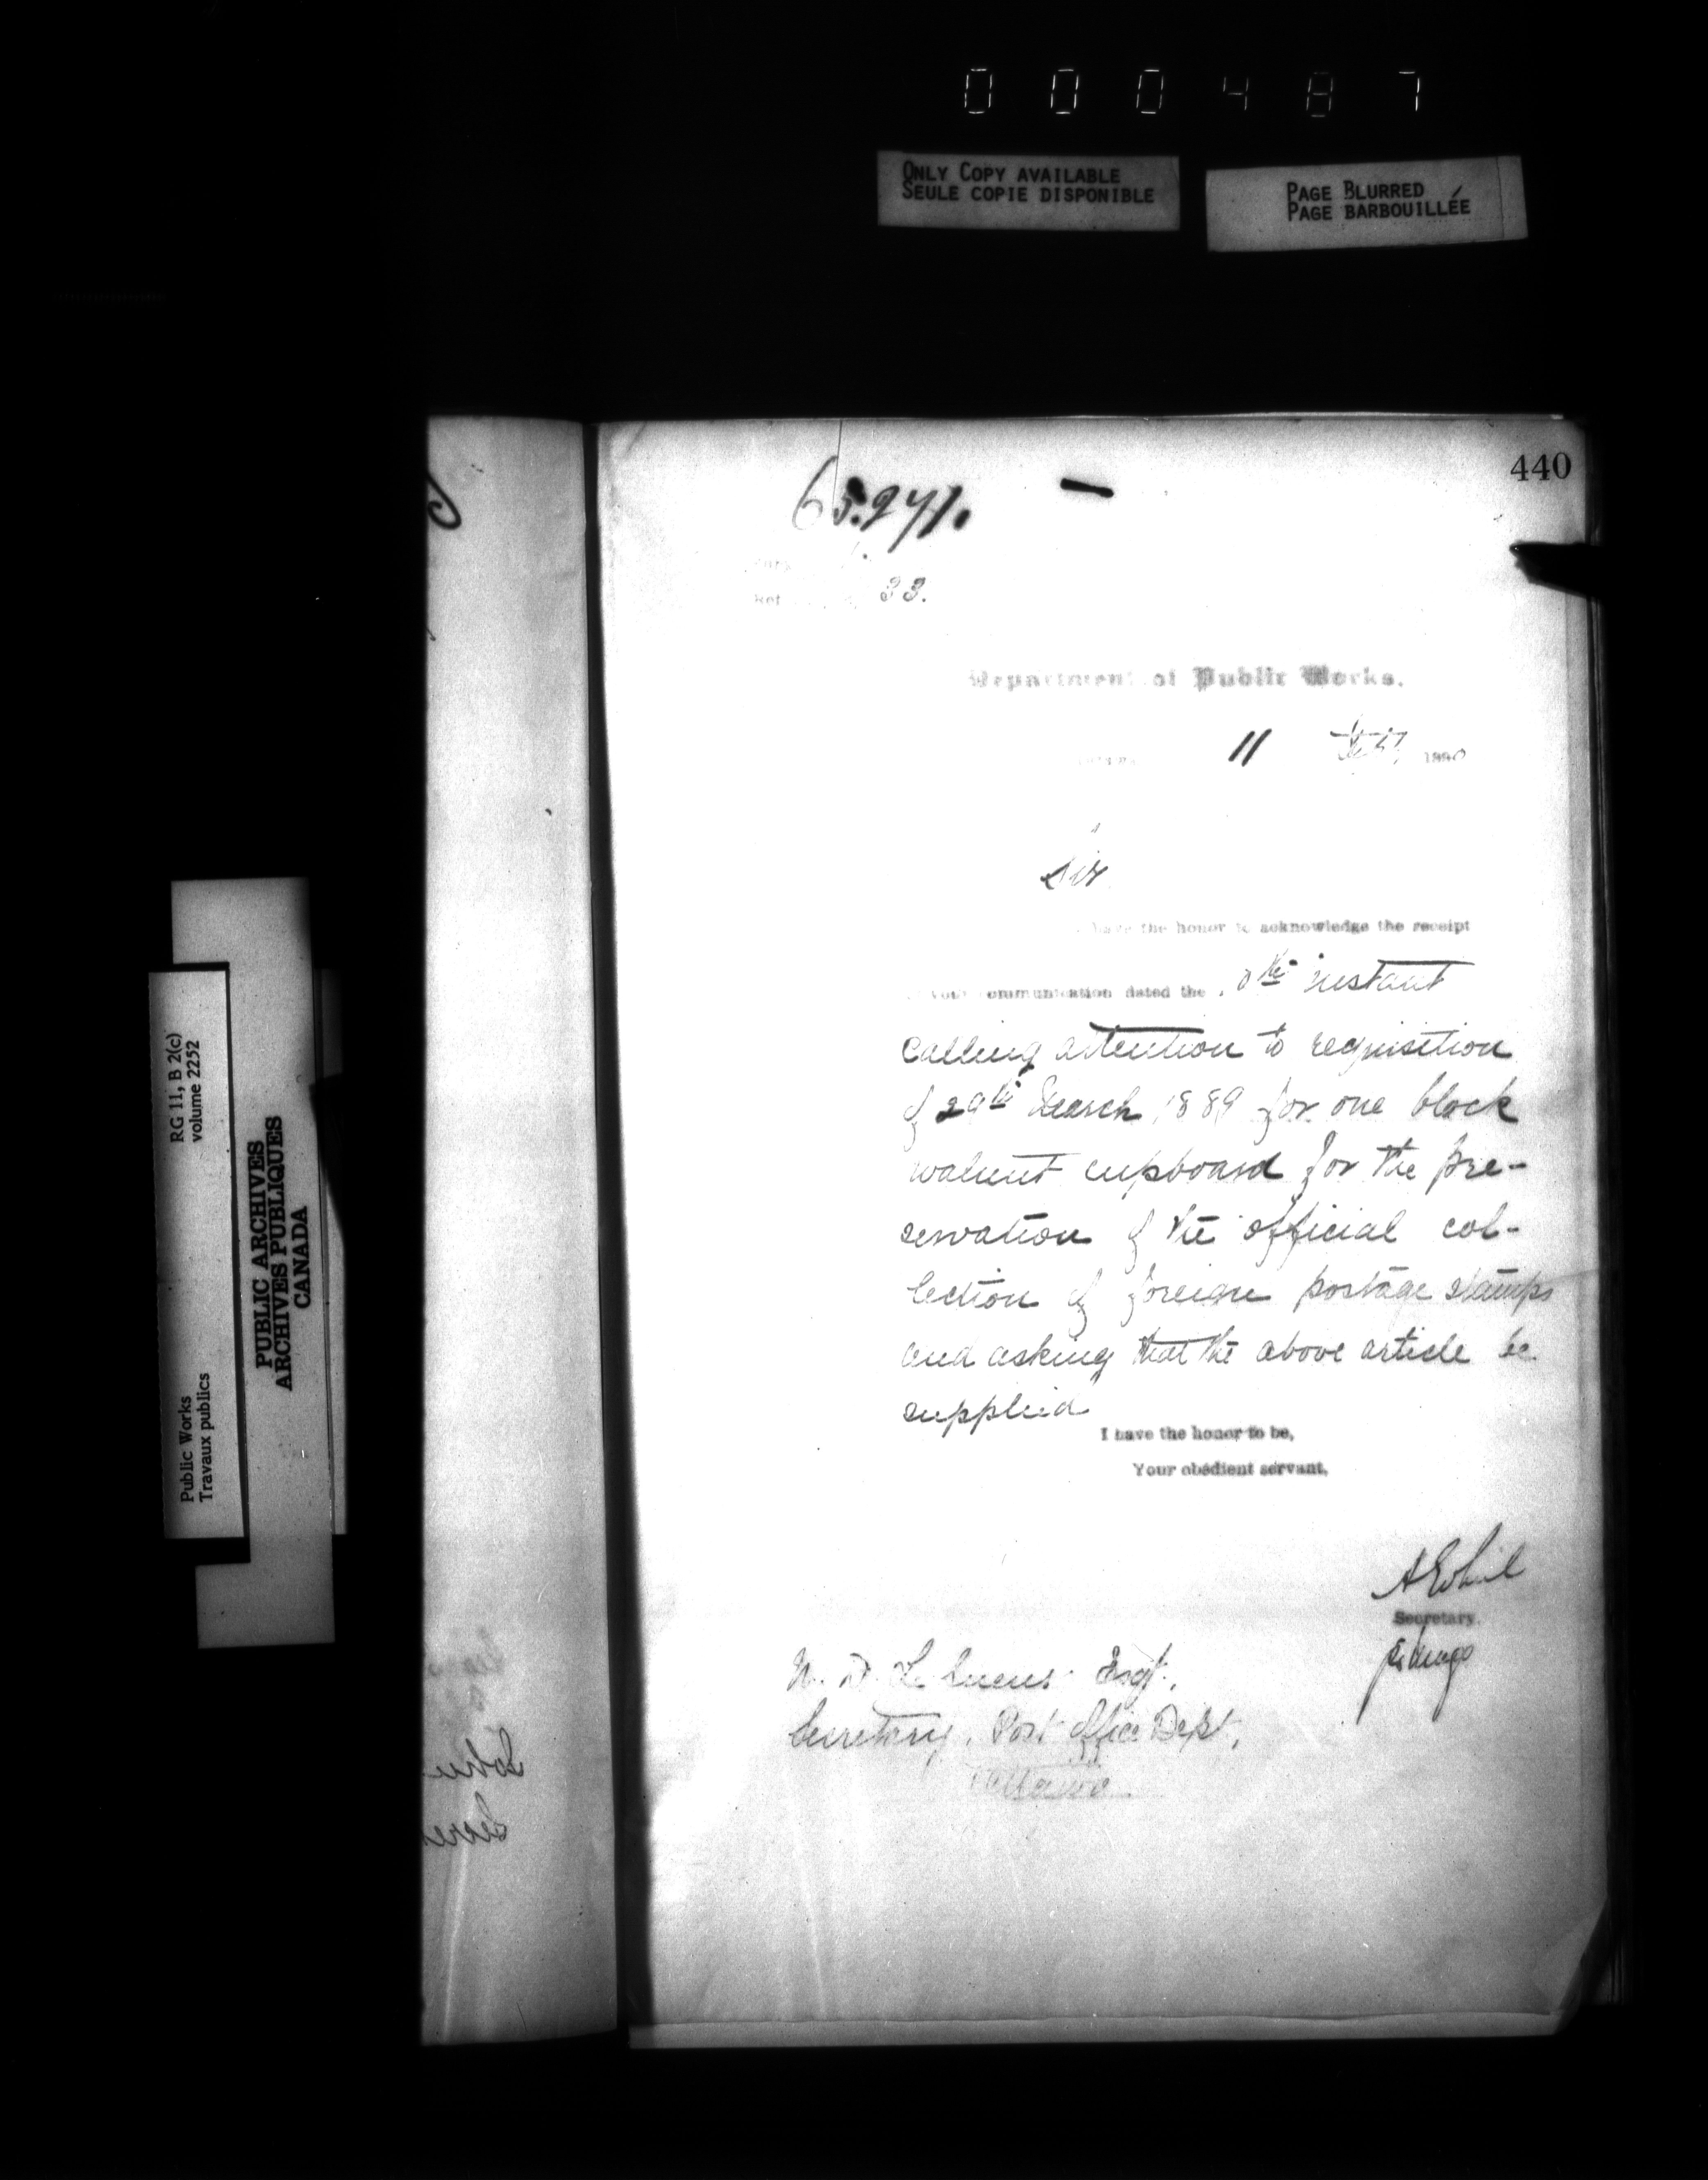 000487
ONLY COPY AVAILABLE
SEULE COPIE DISPONIBLE
PAGE BLURRED
PAGE BARBOUILLÉE
440
65.271.
33.
Department of Public Works.
11 1890
Sir
have the honor to acknowledge the receipt
your communication dated the 0th instant
calling attention to requisition
of 29th March 1889 for one black
walnut cupboard for the pre-
servation of the official col-
lection of foreign postage stamps
and asking that the above article be
supplied
I have the honor to be,
Your obedient servant,
Secretary.
Esqr.
Secretary, Post Office Dept.
Ottawa
RG 11, B 2(c)
volume 2252
PUBLIC ARCHIVES
ARCHIVES PUBLIQUES
CANADA
Public Works
Travaux publics